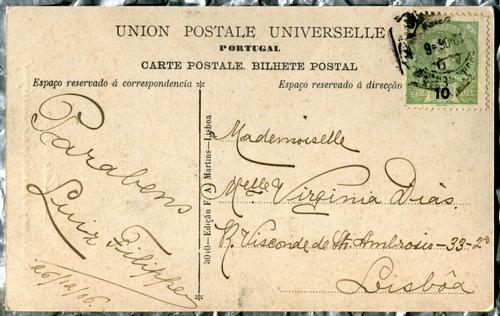 UNION POSTALE UNIVERSELLE
PORTUGAL
CARTE POSTALE. BILHETE POSTAL
Espaço reservado á correspondencia
Espaço reservado á direcção
10
Parabens
Luiz Filippe
26/12/06.
3010-Edição F (A) Martins-Lisboa
Mademoiselle
Melle Virginia Dias.
R. Visconde de St. Ambrosio-33-2º
Lisbôa